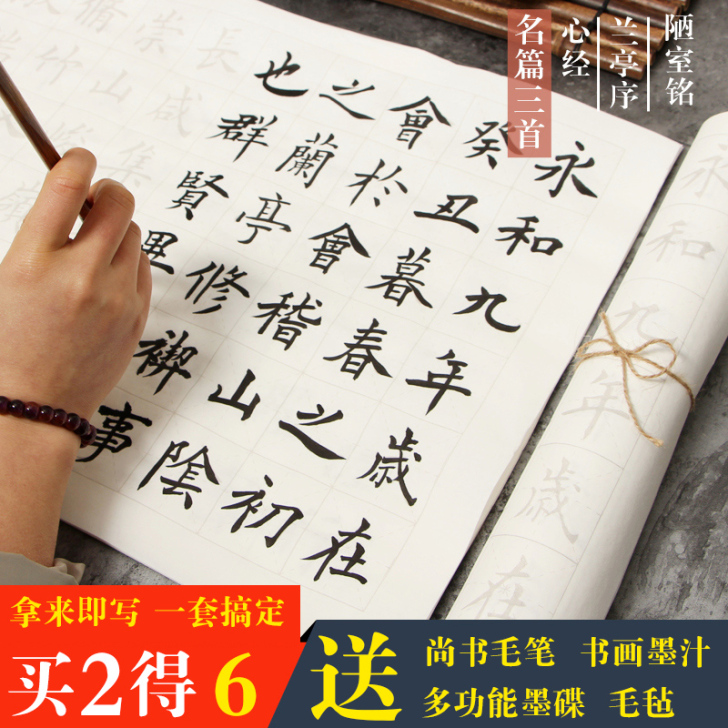 陋室铭
兰亭序
心经
名篇三首
永和九年歲在
癸丑暮春之初
會於會稽山陰
之蘭亭修禊事
也群賢
長咸集
崇山
修竹
永和九年歲在
拿来即写 一套搞定
买2得6
送
尚书毛笔 书画墨汁
多功能墨碟 毛毡